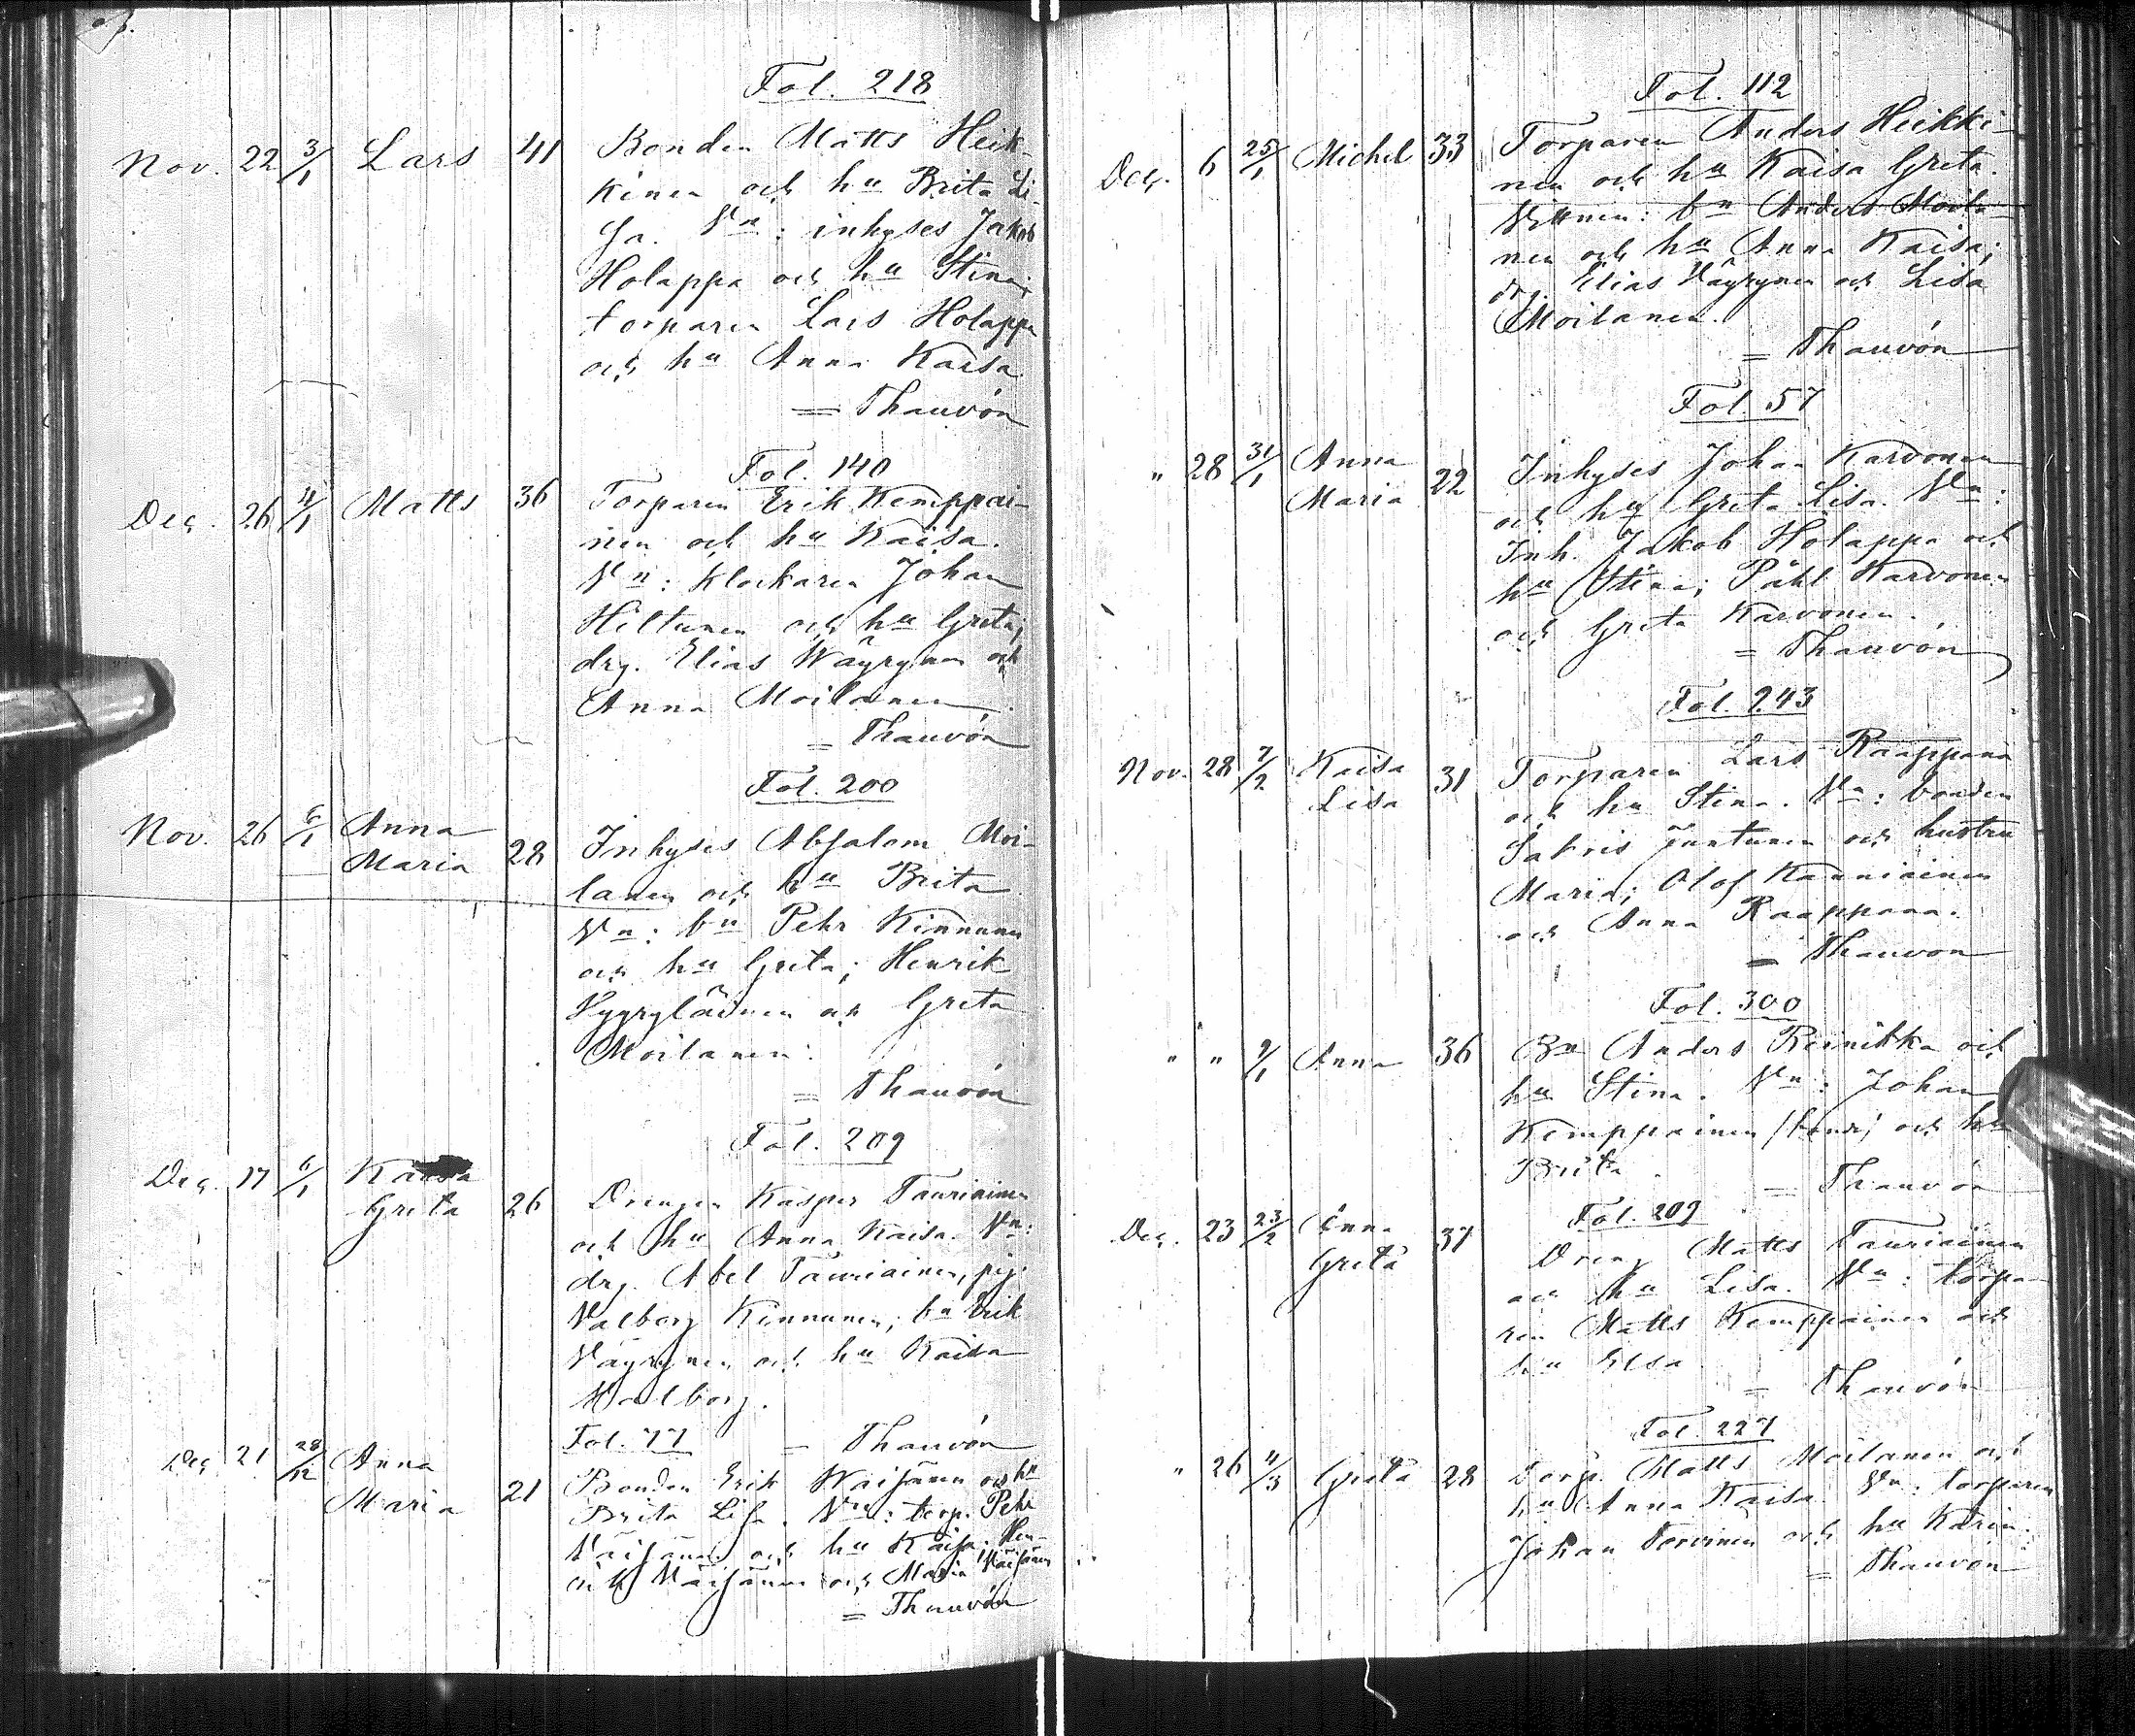 Fol. 218
Nov. 22 3/1 Lars 41 Bonden Matts Heik-
kinen och hu Brita Li-
sa. Vn: inhyses Jakob
Holappa och hu Stina;
torparen Lars Holappa
och hu Anna Kaisa
= Thauvón
Fol. 140
Dec. 26 4/1 Matts 36 Torparen Erik Kemppai-
nen och hu Kaisa.
Vn: Klockaren Johan
Hiltunen och hu Greta;
drg. Elias Wäyrynen och
Anna Moilanen.
= Thauvón
Fol. 200
Nov. 26 6/1 Anna
Maria 28 Inhyses Absalom Moi-
lanen och hu Brita
Vn: bn Pehr Kinnunen
och hu Greta; Henrik
Hyyryläinen och Greta
Moilanen.
= Thauvón
Fol. 209
Dec. 17 6/1 Kaisa
Greta 26 Drengen Kasper Tauriainen
och hu Anna Kaisa. Vn:
drg. Abel Tauriainen, pig.
Valborg Kinnunen; bn Erik
Väyrynen och hu Kaisa
Walborg.
Fol. 77 = Thauvón
Dec. 21 28/12 Anna
Maria 21 Bonden Erik Waisänen och hu
Brita Lisa. Vn: torp. Pehr
Väisänen och hu Kaisa; Hen-
rik Väisänen och Maria Väisänen
= Thauvón
Fol. 112
Dec. 6 25/1 Michel 33 Torparen Anders Heikki-
nen och hu Kaisa Greta.
Vittnen: bn Anders Moila-
nen och hu Anna Kaisa;
drg. Elias Väyrynen och Lisa
Moilanen.
= Thauvón
Fol. 57
" 28 31/1 Anna
Maria 22 Inhyses Johan Karvonen
och hu Greta Lisa. Vn:
Inh. Jakob Holappa och
hu Stina; Påhl Karvonen
och Greta Karvonen.
= Thauvón
Fol. 243
Nov. 28 7/2 Kaisa
Lisa 31 Torparen Lars Raappana
och hu Stina. Vn: bonden
Sakris Juntunen och hustru
Maria; Olof Kauniainen
och Anna Raappana.
= Thauvon
Fol. 300
" " 9/1 Anna 36 Bn Anders Reinikka och
hu Stina. Vn: Johan
Kemppainen /bond/ och hu
Brita.
= Thauvón
Fol. 209
Dec. 23 23/2 Anna
Greta 37 Dreng Matts Tauriainen
och hu Lisa. Vn: torpa-
ren Matts Kemppainen och
hu Elsa
= Thauvón
Fol. 227
" 26 11/3 Greta 28 Torp. Matts Moilanen och
hu Anna Kaisa. Vn: torparen
Johan Torvinen och hu Karin.
= Thauvón